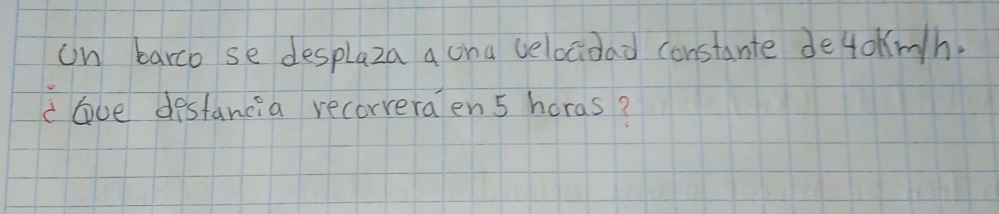 Un barco se desplaza a una velocidad constante de 40Km/h.
¿Que distancia recorrerá en 5 horas?